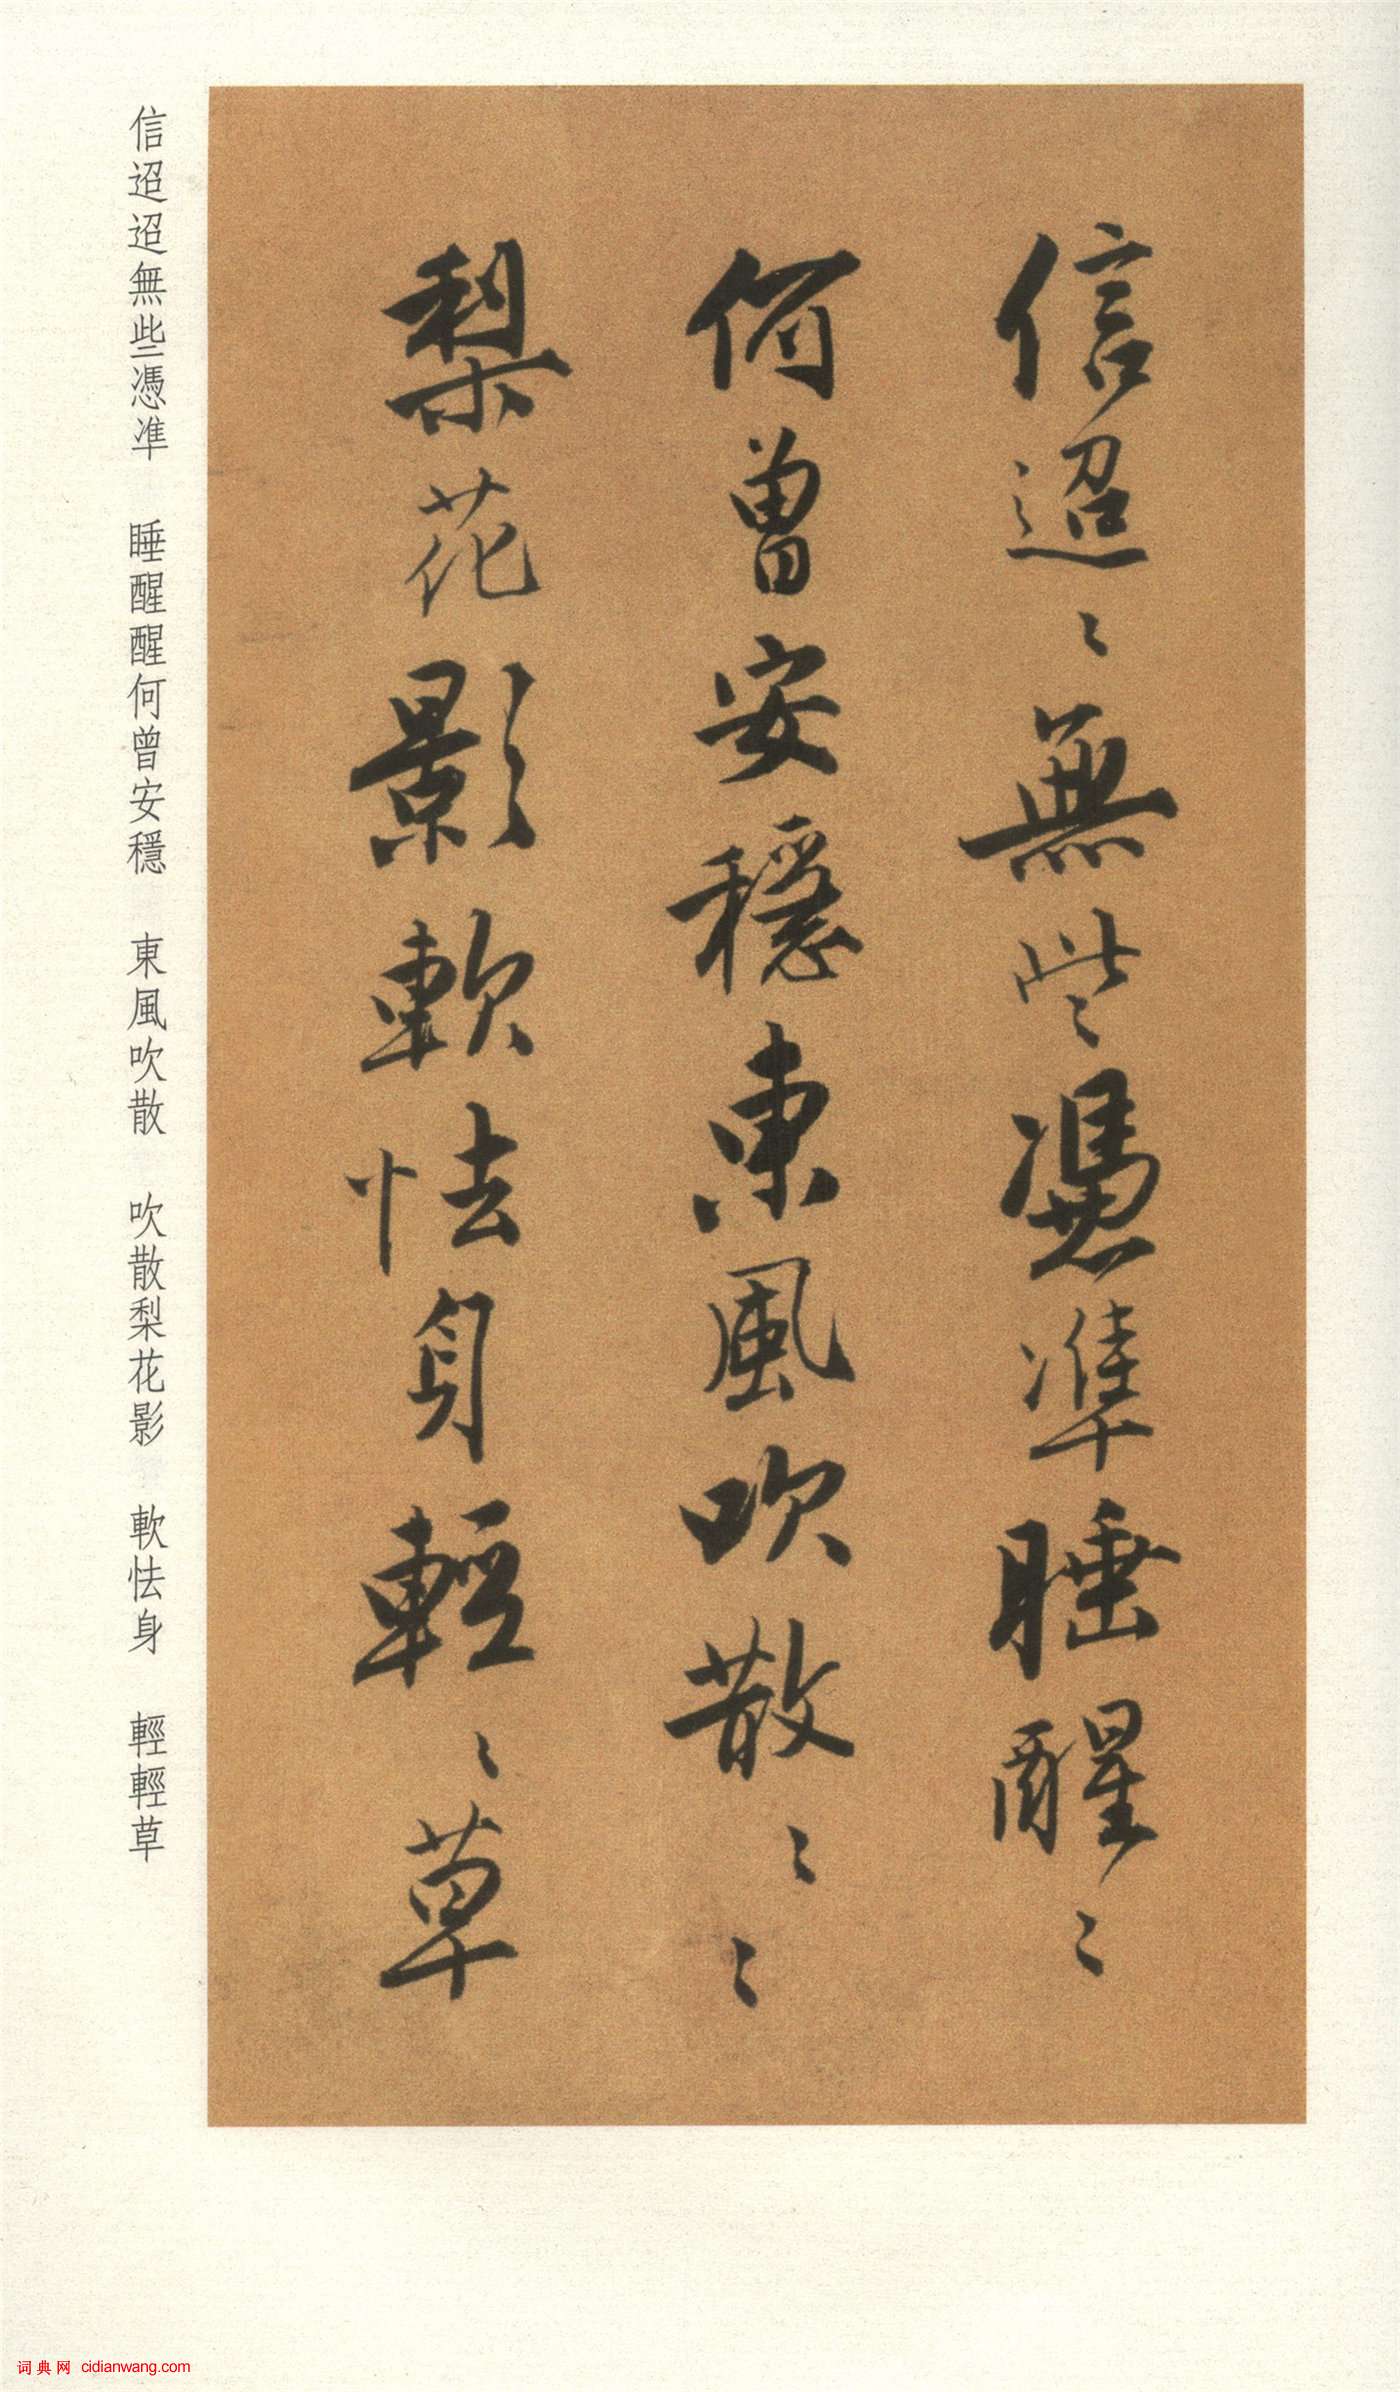 信迢〻無些憑準睡醒〻
何曾安穩東風吹散〻〻
梨花影軟怯身輕〻草
信迢迢無些憑準　睡醒醒何曾安穩　東風吹散　吹散梨花影　軟怯身　輕輕草
词典网 cidianwang.com